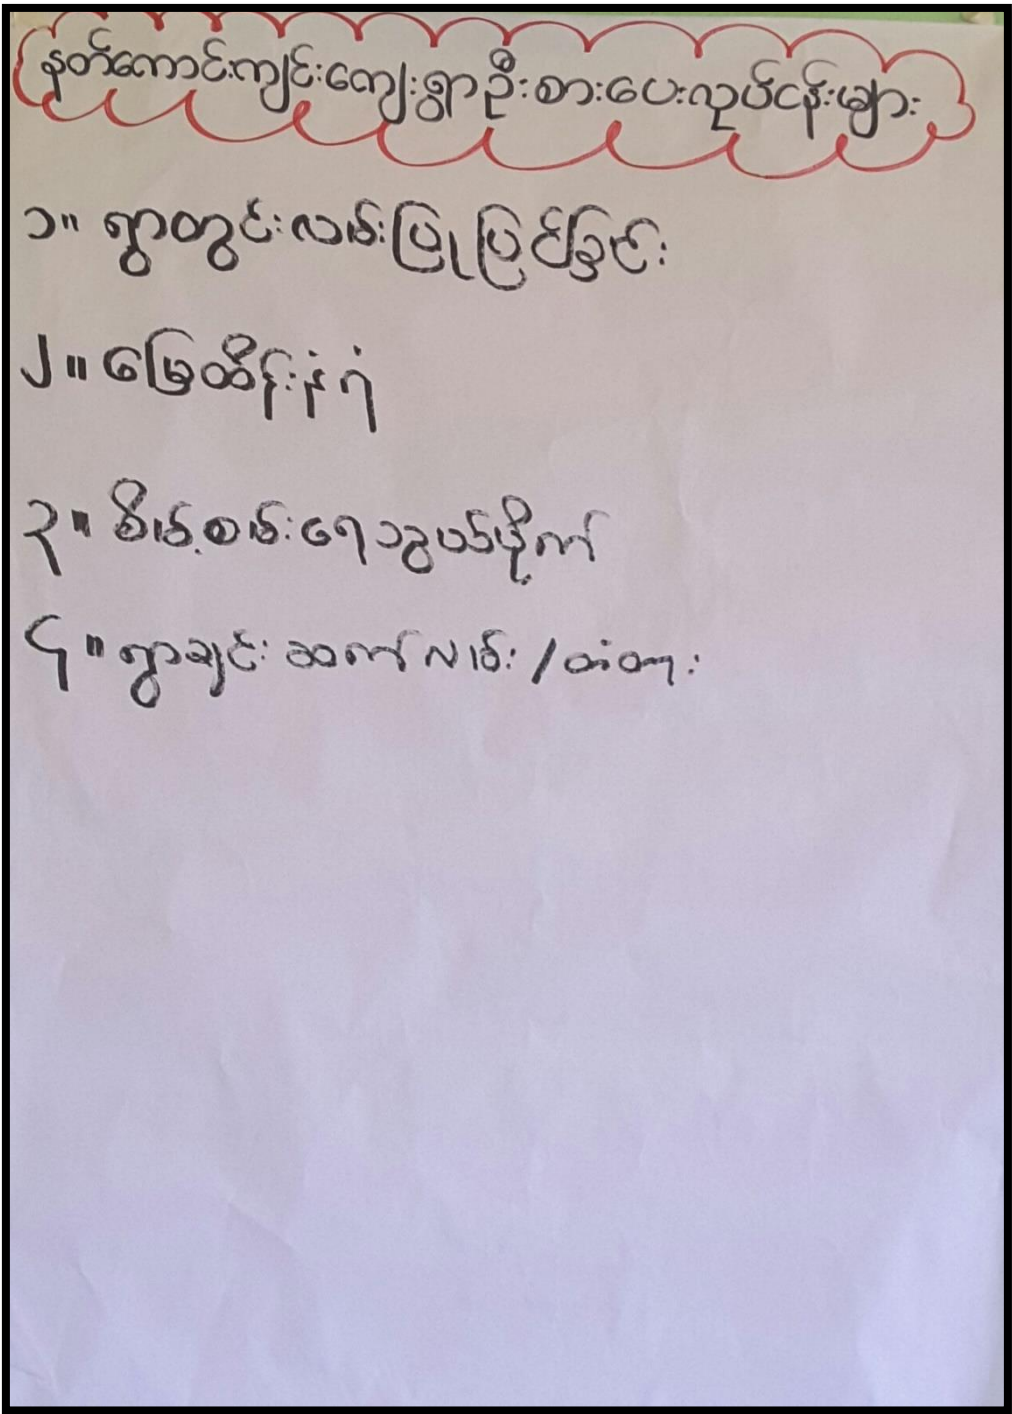 နတ်ကောင်းကျင်းကျေးရွာဦးစားပေးလုပ်ငန်းများ
၁။ ရွာတွင်းလမ်းပြုပြင်ခြင်း
၂။ မြေထိန်းနံရံ
၃။ စိမ့်စမ်းရေသွယ်ပိုက်
၄။ ရွာချင်းဆက်လမ်း/တံတား